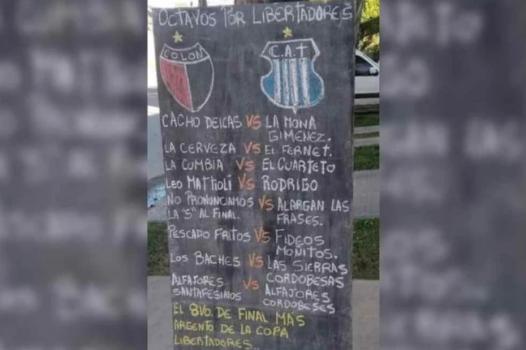 OCTAVOS POR LIBERTADORES
COLON
C.A.T
CACHO DEICAS VS LA MONA GIMENEZ.
LA CERVEZA VS EL FERNET.
LA CUMBIA VS EL CUARTETO
LEO MATTIOLI VS RODRIGO
NO PRONUNCIAMOS LA "S" AL FINAL. VS ALARGAN LAS FRASES.
PESCADO FRITOS VS FIDEOS MOÑITOS.
LOS BACHES VS LAS SIERRAS CORDOBESAS
ALFAJORES SANTAFESINOS VS ALFAJORES CORDOBESES
EL 8VO. DE FINAL MAS
ARGENTO DE LA COPA
LIBERTADORES..